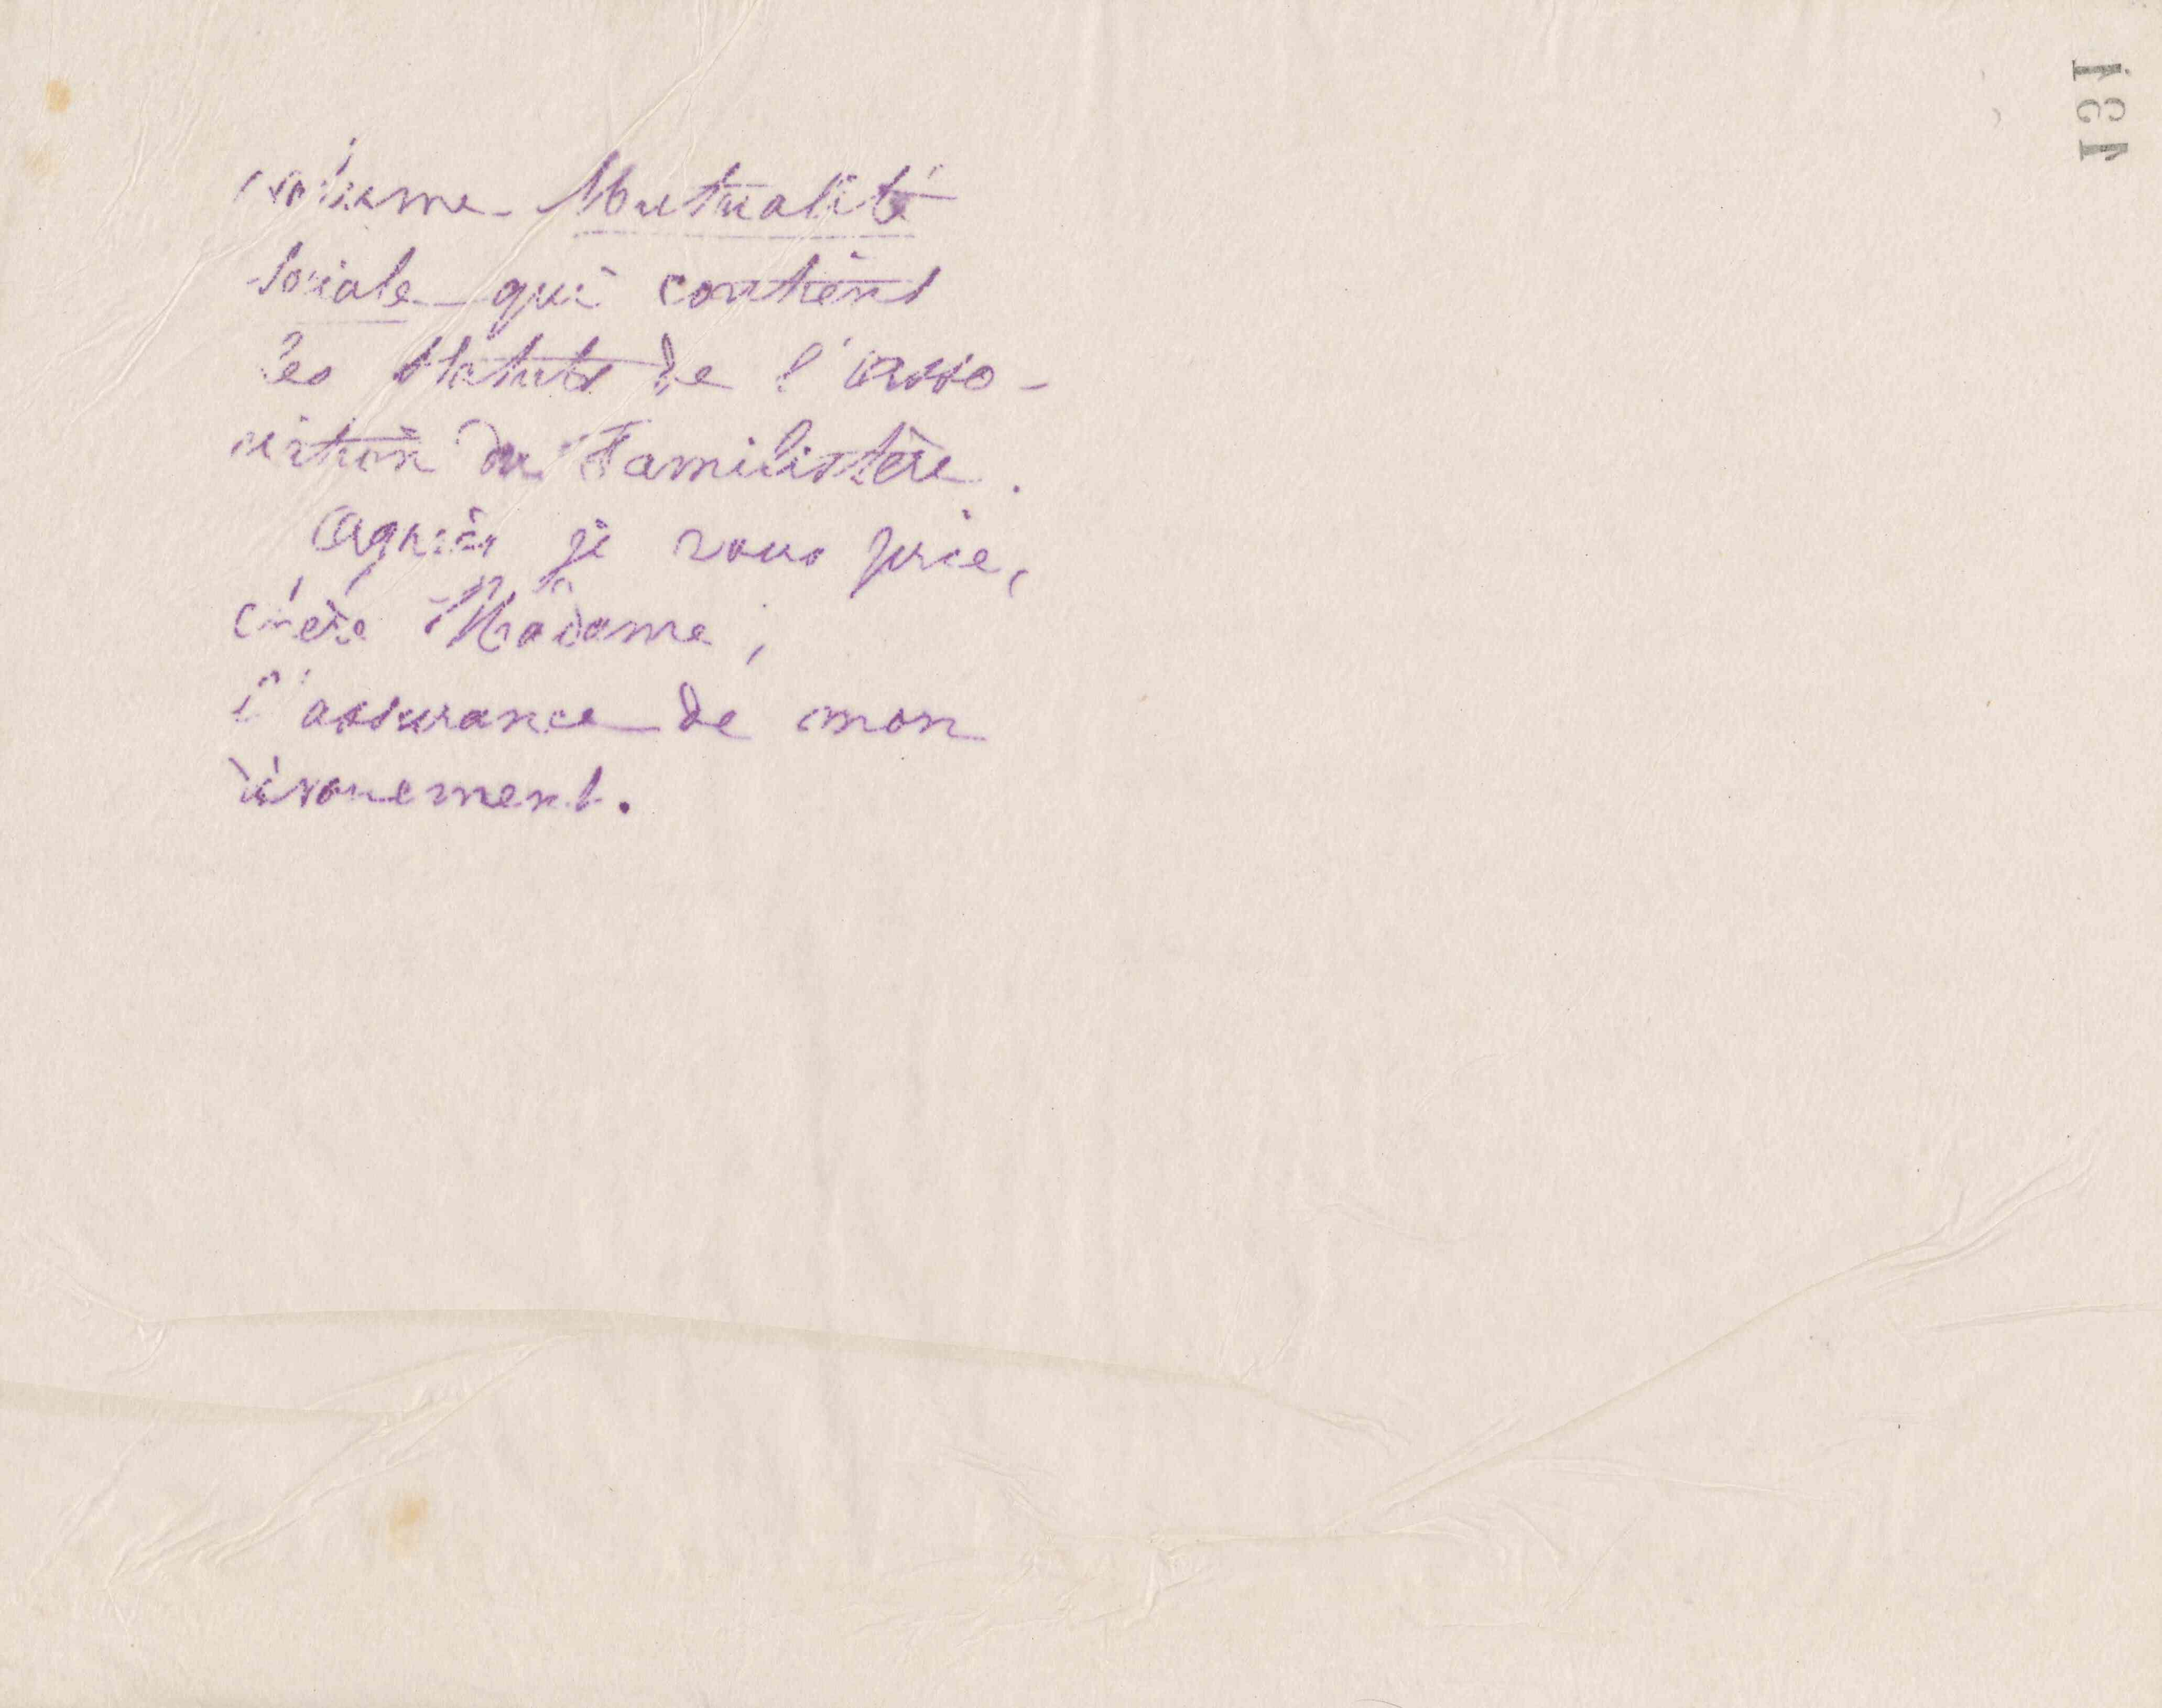 volume Mutualité
sociale qui contient
les statuts de l'asso-
ciation du Familistère.
Agréez je vous prie,
chère Madame,
l'assurance de mon
dévouement.
131